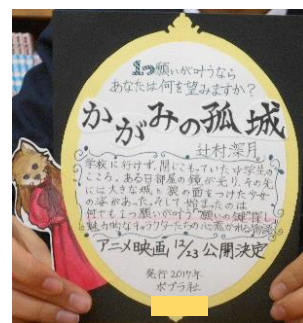 1つ願いが叶うなら
あなたは何を望みますか?
かがみの孤城
辻村深月
学校に行けず、閉じこもっていた中学生の
こころ。ある日部屋の鏡が光り、その先
には大きな城と狼の面をつけた少女
の姿があった。そして始まったのは
何でも1つ願いが叶う"願いの鍵"探し
魅力的なキャラクターたちの心惹かれる物語
アニメ映画12/23公開決定
発行2017年
ポプラ社